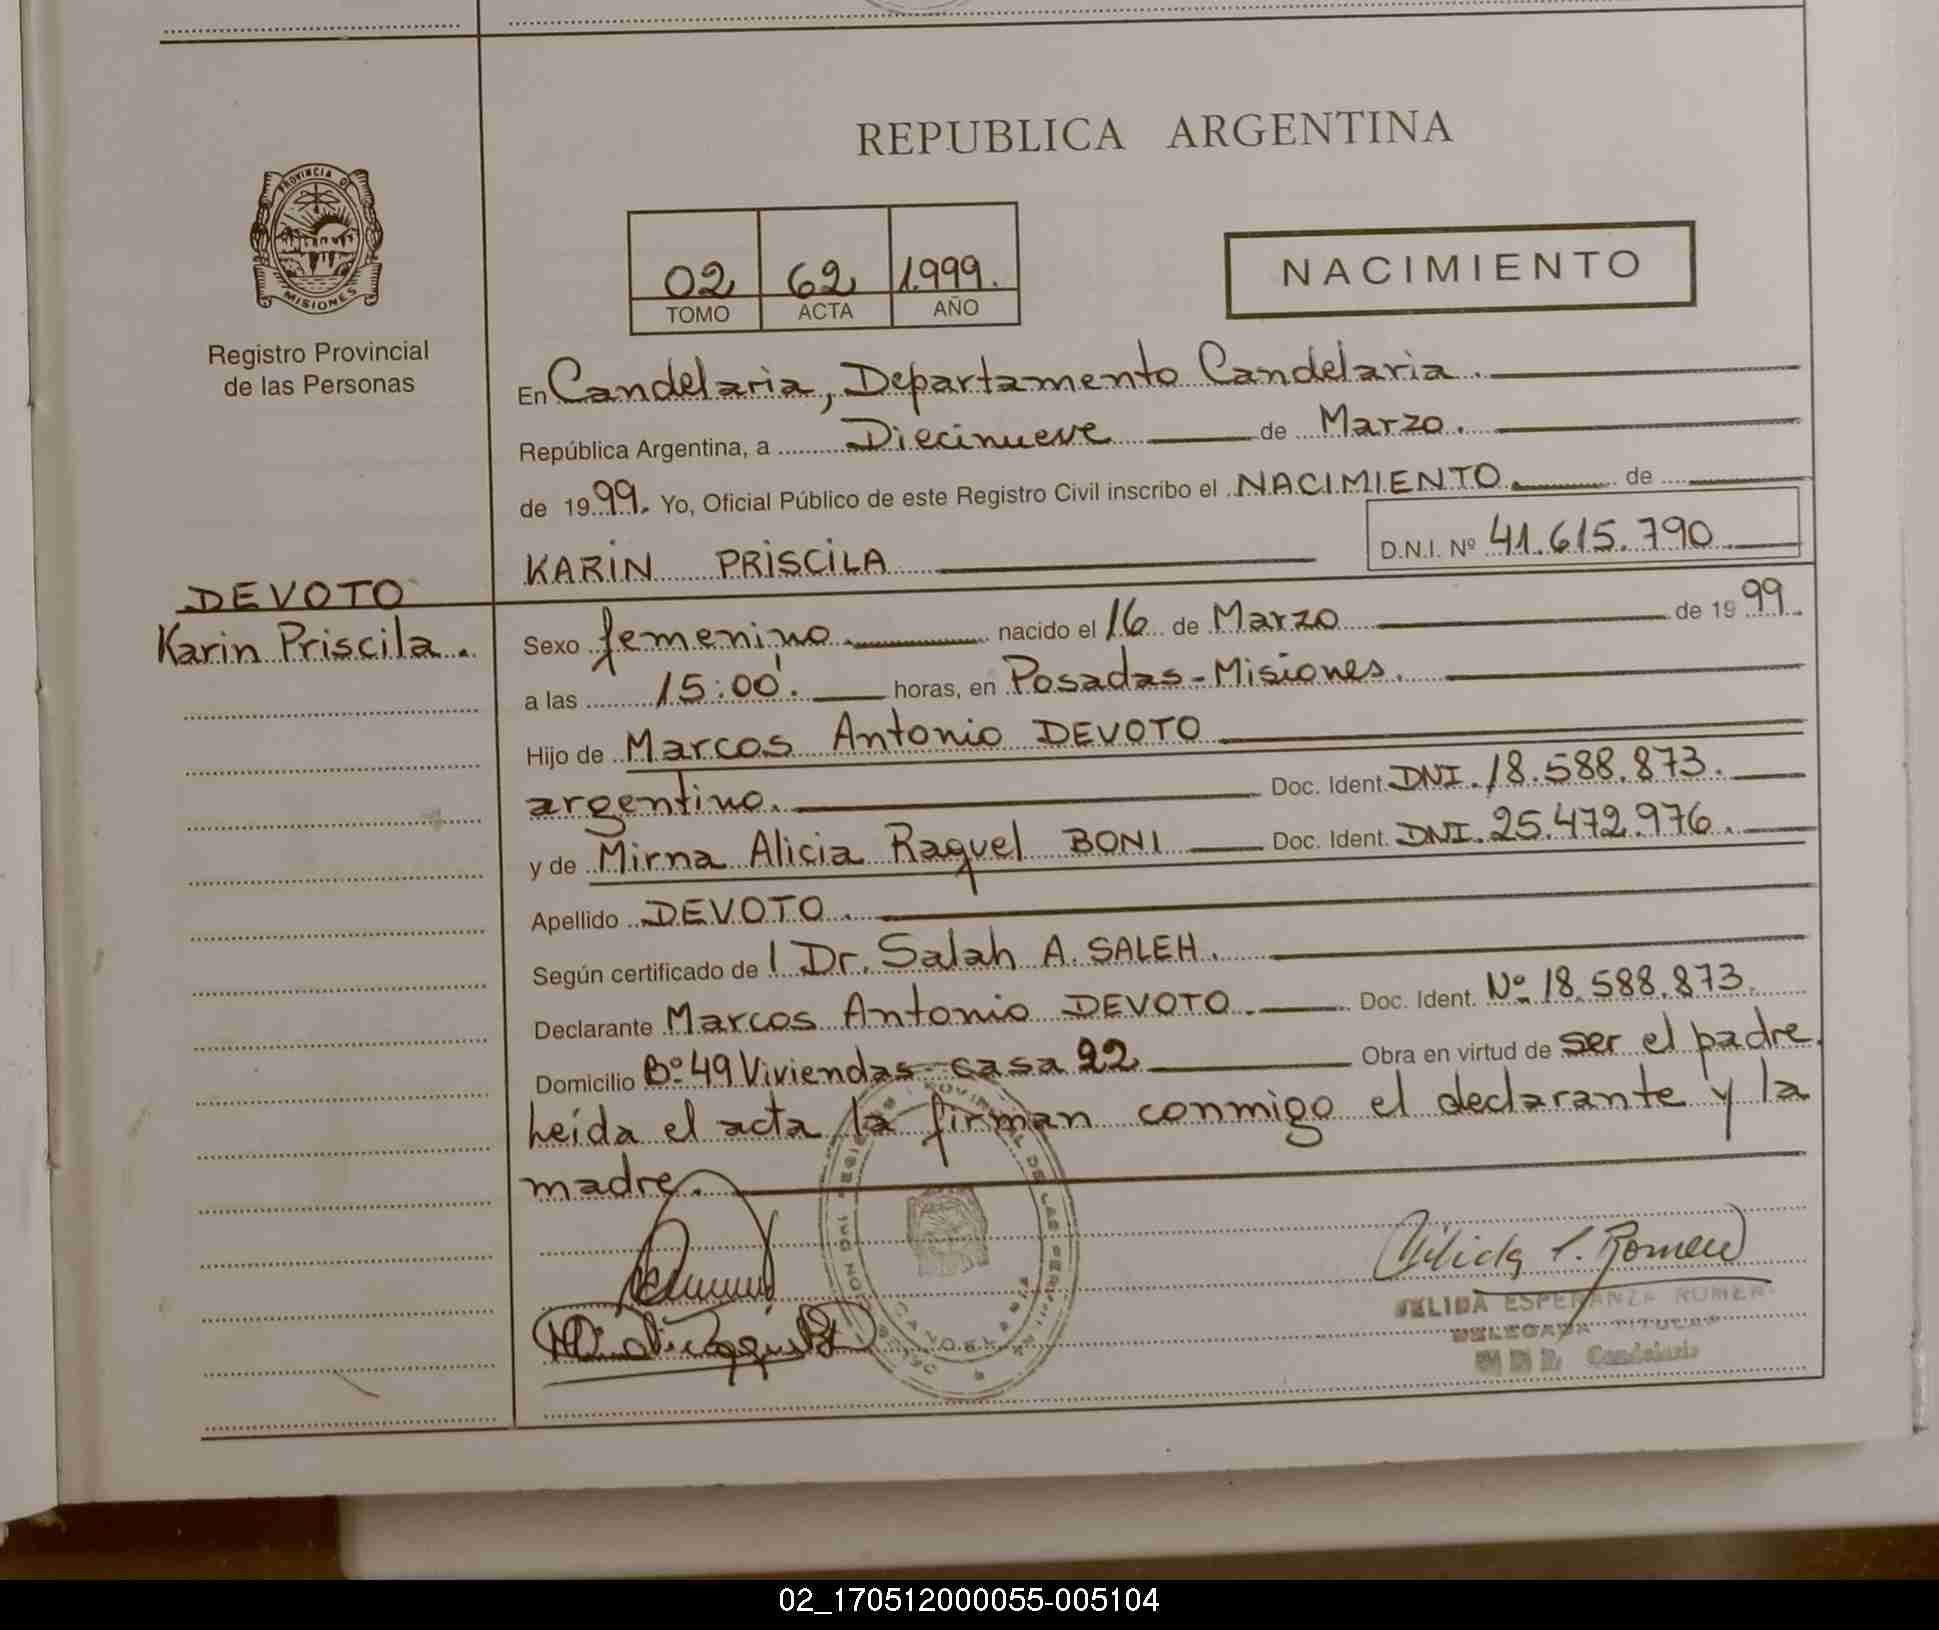 REPUBLICA ARGENTINA
PROVINCIA DE
MISIONES
Registro Provincial
de las Personas
02 62 1.999.
TOMO ACTA AÑO
NACIMIENTO
En Candelaria, Departamento Candelaria.
República Argentina, a Diecinueve de Marzo.
de 1999. Yo, Oficial Público de este Registro Civil inscribo el NACIMIENTO de
KARIN PRISCILA D.N.I. Nº 41.615.790
DEVOTO
Karin Priscila.
Sexo femenino. nacido el 16 de Marzo de 1999.
a las 15:00'. horas, en Posadas-Misiones.
Hijo de Marcos Antonio DEVOTO
argentino. Doc. Ident. DNI. 18.588.873.
y de Mirna Alicia Raquel BONI Doc. Ident. DNI. 25.472.976.
Apellido DEVOTO.
Según certificado de l Dr. Salah A. SALEH.
Declarante Marcos Antonio DEVOTO. Doc. Ident. Nº 18.588.873.
Domicilio Bº 49 Viviendas- casa 22 Obra en virtud de ser el padre.
Leída el acta, la firman conmigo el declarante y la
madre.
CANDELARIA
ESPERANZA ROMERO
DELEGADA TITULAR
Candelaria
02_170512000055-005104